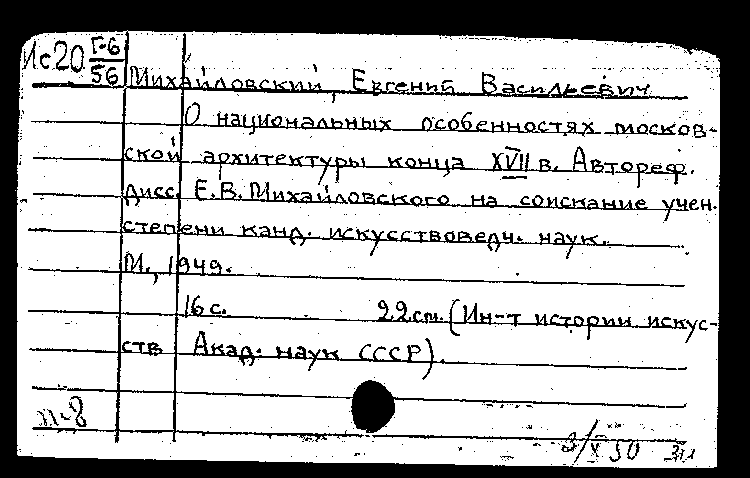 Ис20 Г-6/56
Михайловский, Евгений Васильевич
О национальных особенностях москов-
ской архитектуры конца XVII в. Автореф.
дисс. Е.В. Михайловского на соискание учен.
степени канд. искусствоведч. наук.
М., 1949.
16 с. 22 см. (Ин-т истории искус-
ств Акад. наук СССР).
п-8
3/X 50